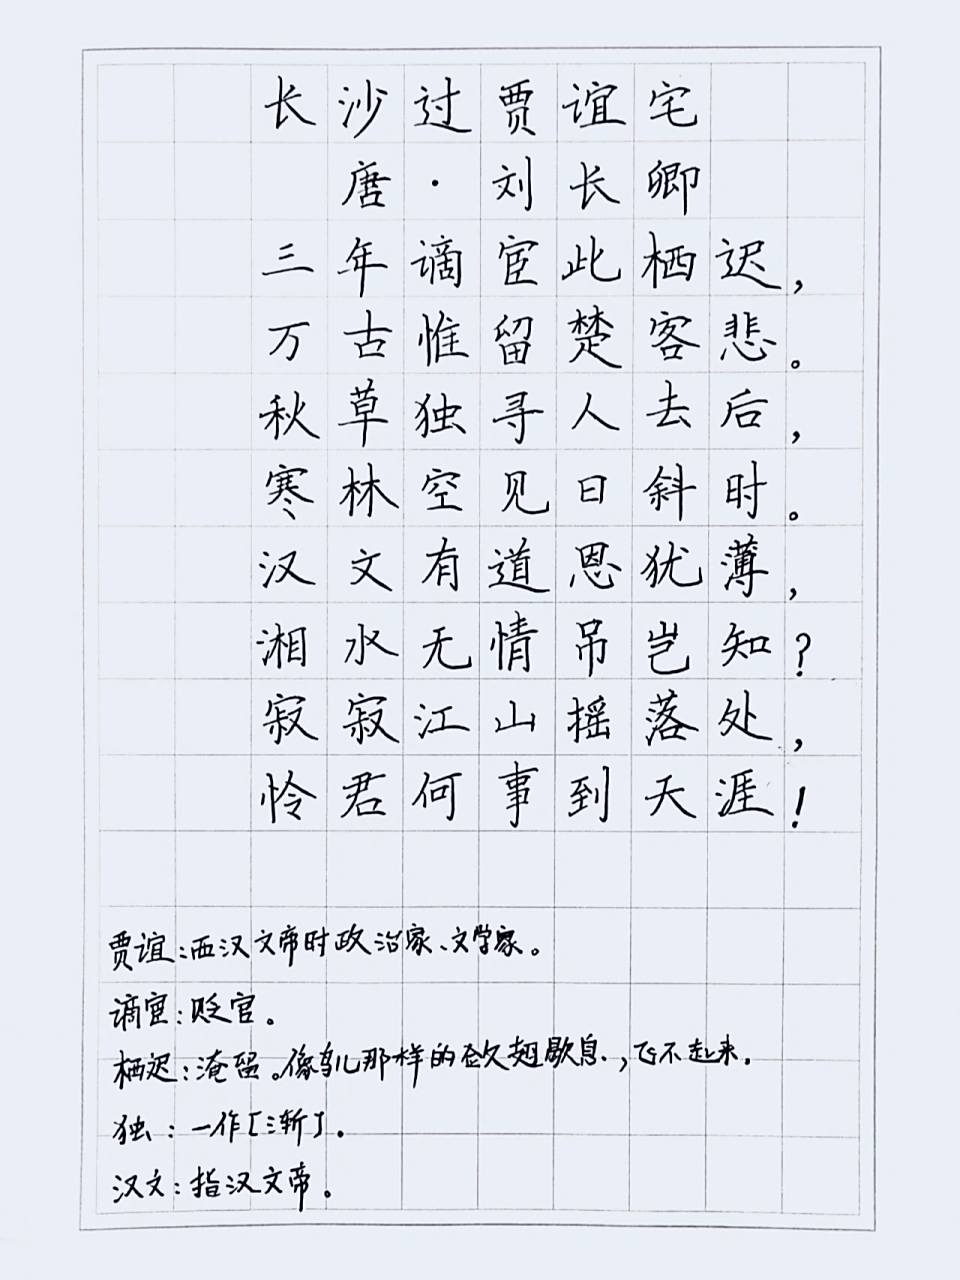 长沙过贾谊宅
唐·刘长卿
三年谪宦此栖迟，
万古惟留楚客悲。
秋草独寻人去后，
寒林空见日斜时。
汉文有道恩犹薄，
湘水无情吊岂知？
寂寂江山摇落处，
怜君何事到天涯！
贾谊：西汉文帝时政治家、文学家。
谪宦：贬官。
栖迟：淹留。像鸟儿那样的敛翅歇息，飞不起来.
独：一作[渐].
汉文：指汉文帝。